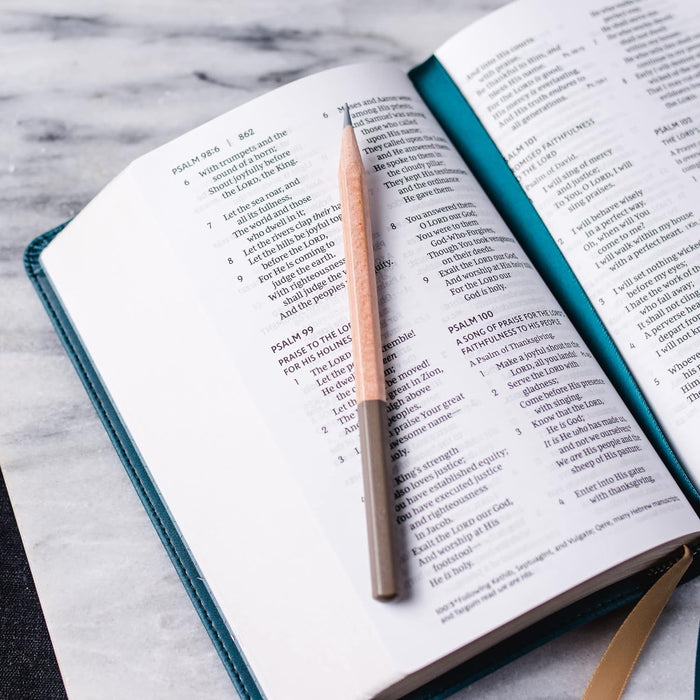 PSALM 98:6 | 862
6 With trumpets and the
sound of a horn;
Shout joyfully before
the LORD, the King.
7 Let the sea roar, and
all its fullness,
The world and those
who dwell in it;
8 Let the rivers clap their
Let the hills be joyful tog
before the LORD,
9 For He is coming to
judge the earth.
With righteousness
shall judge the w
And the peoples uity.
PSALM 99
PRAISE TO THE LOR
FOR HIS HOLINES
1 The LORD
Let the p tremble!
He dwel een
Let the be moved!
2 The great in Zion,
And high above
peoples.
3 praise Your great
awesome name—
oly.
4 King's strength
also loves justice;
You have established equity;
You have executed justice
and righteousness
in Jacob.
Exalt the LORD our God,
And worship at His
footstool—
He is holy.
6 Moses and Aaron were
among His priests,
And Samuel was among
those who called
upon His name;
They called upon the LORD
and He answered them.
He spoke to them in
the cloudy pillar;
They kept His testimonies
and the ordinance
He gave them.
8 You answered them,
O LORD our God;
You were to them
God-Who-Forgives,
Though You took vengeance
on their deeds.
9 Exalt the LORD our God,
And worship at His holy
For the LORD our
God is holy.
PSALM 100
A SONG OF PRAISE FOR THE LORD'S
FAITHFULNESS TO HIS PEOPLE
A Psalm of Thanksgiving.
1 Make a joyful shout to the
LORD, all you lands!
2 Serve the LORD with
gladness;
Come before His presence
with singing.
3 Know that the LORD,
He is God;
It is He who has made us,
and not we ourselves;
We are His people and the
sheep of His pasture.
4 Enter into His gates
with thanksgiving,
100:3 Following Kethib, Septuagint, and Vulgate; Qere, many Hebrew manuscripts,
and Targum read we are His.
And into His courts
with praise.
Be thankful to Him, and
bless His name.
5 For the LORD is good;
His mercy is everlasting,
And His truth endures to
all generations.
PSALM 101
PROMISED FAITHFULNESS
TO THE LORD
A Psalm of David.
1 I will sing of mercy
and justice;
To You, O LORD, I will
sing praises.
2 I will behave wisely
in a perfect way.
Oh, when will You
come to me?
I will walk within my house
with a perfect heart.
3 I will set nothing wicked
before my eyes;
I hate the work of
who fall away;
It shall not cling
4 A perverse hea
depart from
I will not kno
5 Whoever
his
Him
The